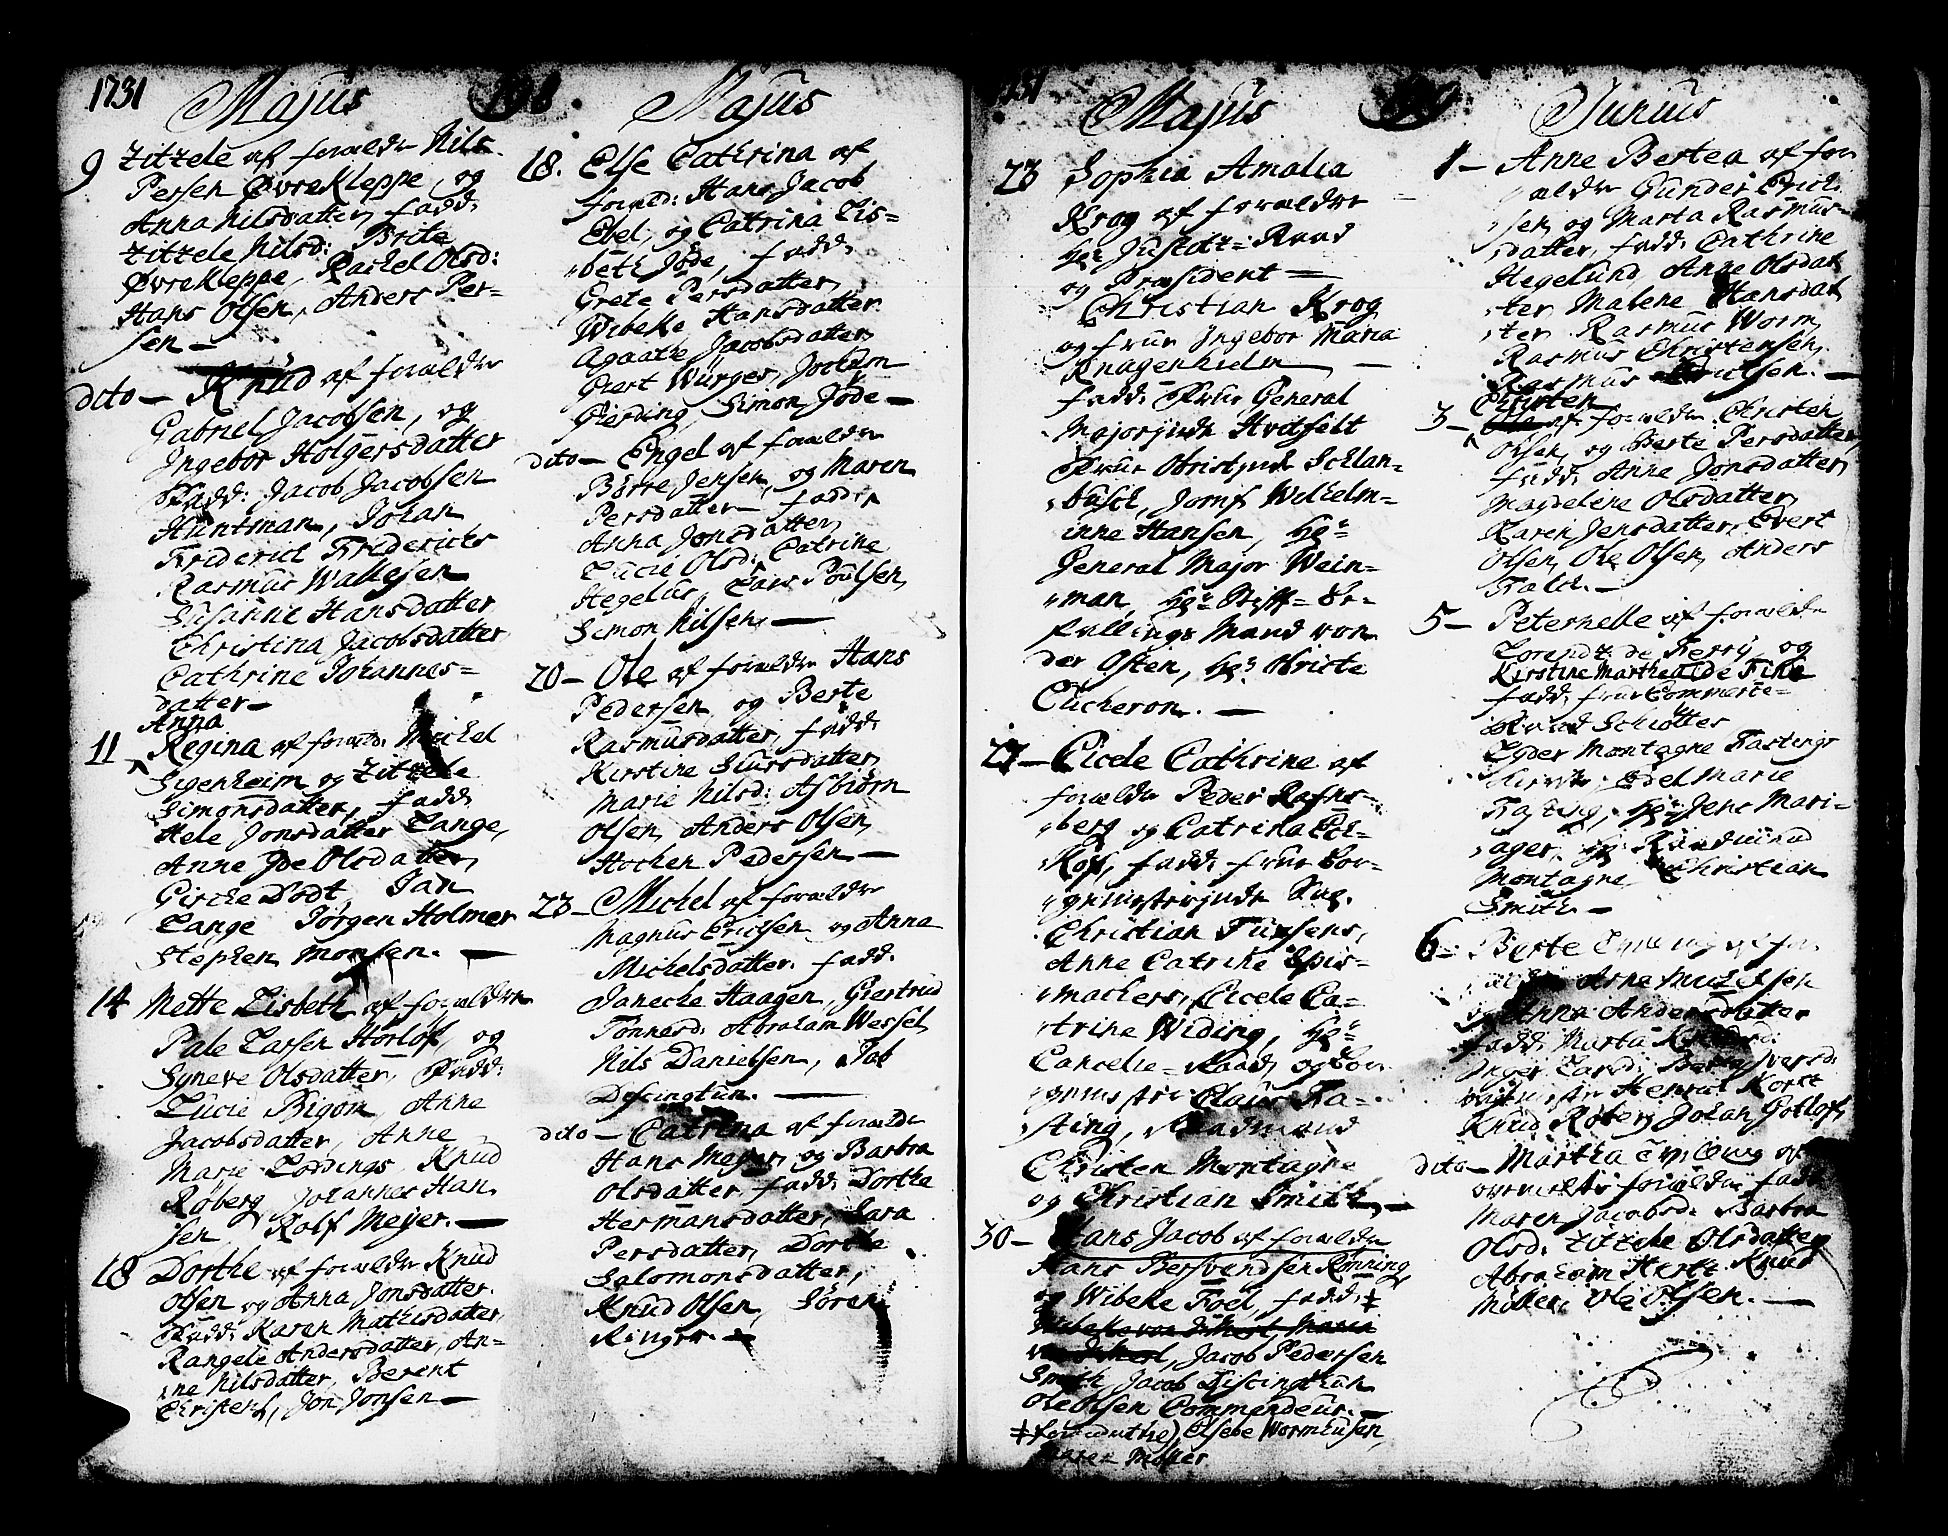 1731 Majus 198.
9 Zitzele af forældre Nils
Persen Øvrekleppe, og
Anna Nilsdatter, fadd:
Zitzele Nilsd: Brite
Øvrekleppe, Rachel Olsd:
Hans Olsen, Anders Per-
sen —
dito — Knud af forældre
Gabriel Jacobsen, og
Ingebor Holgersdatter
Fadd: Jacob Jacobsen
Huntman, Johan
Friderich Fridericks
Rasmus Wallesen
Susanne Hansdatter
Christina Jacobsdatter
Cathrine Johannes=
datter —
Anna
11 Regina af foræld: Michel
Sigenheim og Zitzele
Simonsdatter, fadd:
Hele Jonsdatter Lange,
Anne Jde Olsdatter,
Gircke Dodt, Jan
Lange Jørgen Holmer
Stephen Monsen. —
14 Mette Lisbeth af forældre
Pale Larsen Horlof, og
Syneve Olsdatter, Fadd:
Lucie Bigom, Anne
Jacobsdatter, Anne
Marie Lordings, Knud
Roberg, Johannes Han-
sen, Rolf Meyer. —
18 Dorthe af forældre Knud
Olsen og Anna Jonsdatter.
Fadd: Karen Mathisdatter,
Rangele Andersdatter, An-
ne Nilsdatter, Berent
Christens, Jon Jonsen —
Majus
18. Else Cathrina af
foræld: Hans Jacob
Ebel, og Catrina Lis=
beth Jøde, fadd:
Grete Persdatter,
Wibeke Hansdatter
Agaathe Jacobsdatter,
Giert Würger, Jochum
Gierding, Simon Jøde —
dito — Engel af forældre
Børre Jensen, og Maren
Persdatter fadder
Anna Jonsdatter,
Lucie Olsd: Catrine
Hegelus, Lars Poulsen,
Simon Nilsen, —
20 — Ole af forældre Hans
Pedersen og Berte
Rasmusdatter, fadd:
Kirstine Siursdatter,
Marie Nilsd: Asbiørn
Olsen, Anders Olsen,
Hochen Pedersen —
23 — Michel af forældre
Magnus Ericksen og Anna
Michelsdatter. fadd:
Janecke Haagen, Giertrud
Tonnesd: Abraham Wessel,
Nils Danielsen, Job
Discingtun. —
dito — Catrina af forældre
Hans Meyer, og Barbra
Olsdatter, fadd: Dorthe
Hermansdatter, Sara
Persdatter, Dorthe
Salomonsdatter,
Knud Olsen, Søren
Ringer. —
1731 Majus 199
23 Sophia Amalia
Krog af forældre
Hr: Justitz=Raad
og Præsident =
Christian Krog
og frue Ingebor Maria
Knagenhielm —
fadd: Frue General
Majorinde Hvitfelt
Frue Obristinde Schlan=
busch, Jomf: Wilhelm=
inne Hansen, Hr:
General Major Wein=
man, Hr: Stift=Be-
fallings Mand von
der Osten, Hr: Obriste
Cicheron. —
27 — Cicele Cathrine af
forældre Peder Rafns=
berg og Catrina Eck=
Kof, fadd: frue Bor=
gemesterinde Sal.
Christian Fuesens,
Anne Catrine Spis=
machers, Cicele Ca=
trine Widing, Hr:
Cancelie=Raad, og Bor-
gemester Claus Fa-
sting, Raadmand
Christen Montagne
og Christian Smith, —
30 — Hans Jacob af forældre
Hans Bersvendsen Rønning,
og Wibeke Foel, fadd: ‡
Jacob Pedersen
Smith, Jacob Discingthun
Ole Olsen Commandeur. —
Elsebe Wormhusen,
Møller
Junius
1 — Anne Bertea af for-
ældre Gunder Erich-
sen, og Marta Rasmus=
datter, fadd: Cathrine
Hegelund, Anne Olsdat
ter, Malene Hansdat
ter, Rasmus Worm,
Rasmus Christensen,
Rasmus Knutsen. —
Christen
3 — af forældre Christen
Olsen, og Berte Persdatter,
fadd: Anne Jonsdatter,
Magdelena Olsdatter,
Karen Jensdatter, Evert
Olsen, Ole Olsen, Anders
Falch. —
5 — Peternelle af forældre
Lorentz de Ferry, og
Kirstine Marthea de Fine
fadd: frue Commerce=
Raad Schiøtter
Eyder Montagne Fastings
Edel Marie
Fasting, Hr: Jens Mari=
ager, Hr: Raadmand
Montagne, Christian
Smith. —
6 — Berte af for-
ældre Arne Michelsen
og Anna Andersdatter
fadd: Marta
Inger Larsd: Iversd:
Henrich Kortz
Knud Roberg Johan Gotlof,
dito — Martha af
forældre, fadd:
Maren Jacobsd: Barbra
Olsd: Zitzele Olsdatter,
Abraham Hertz, Knud
Møller, Ole Olsen. —